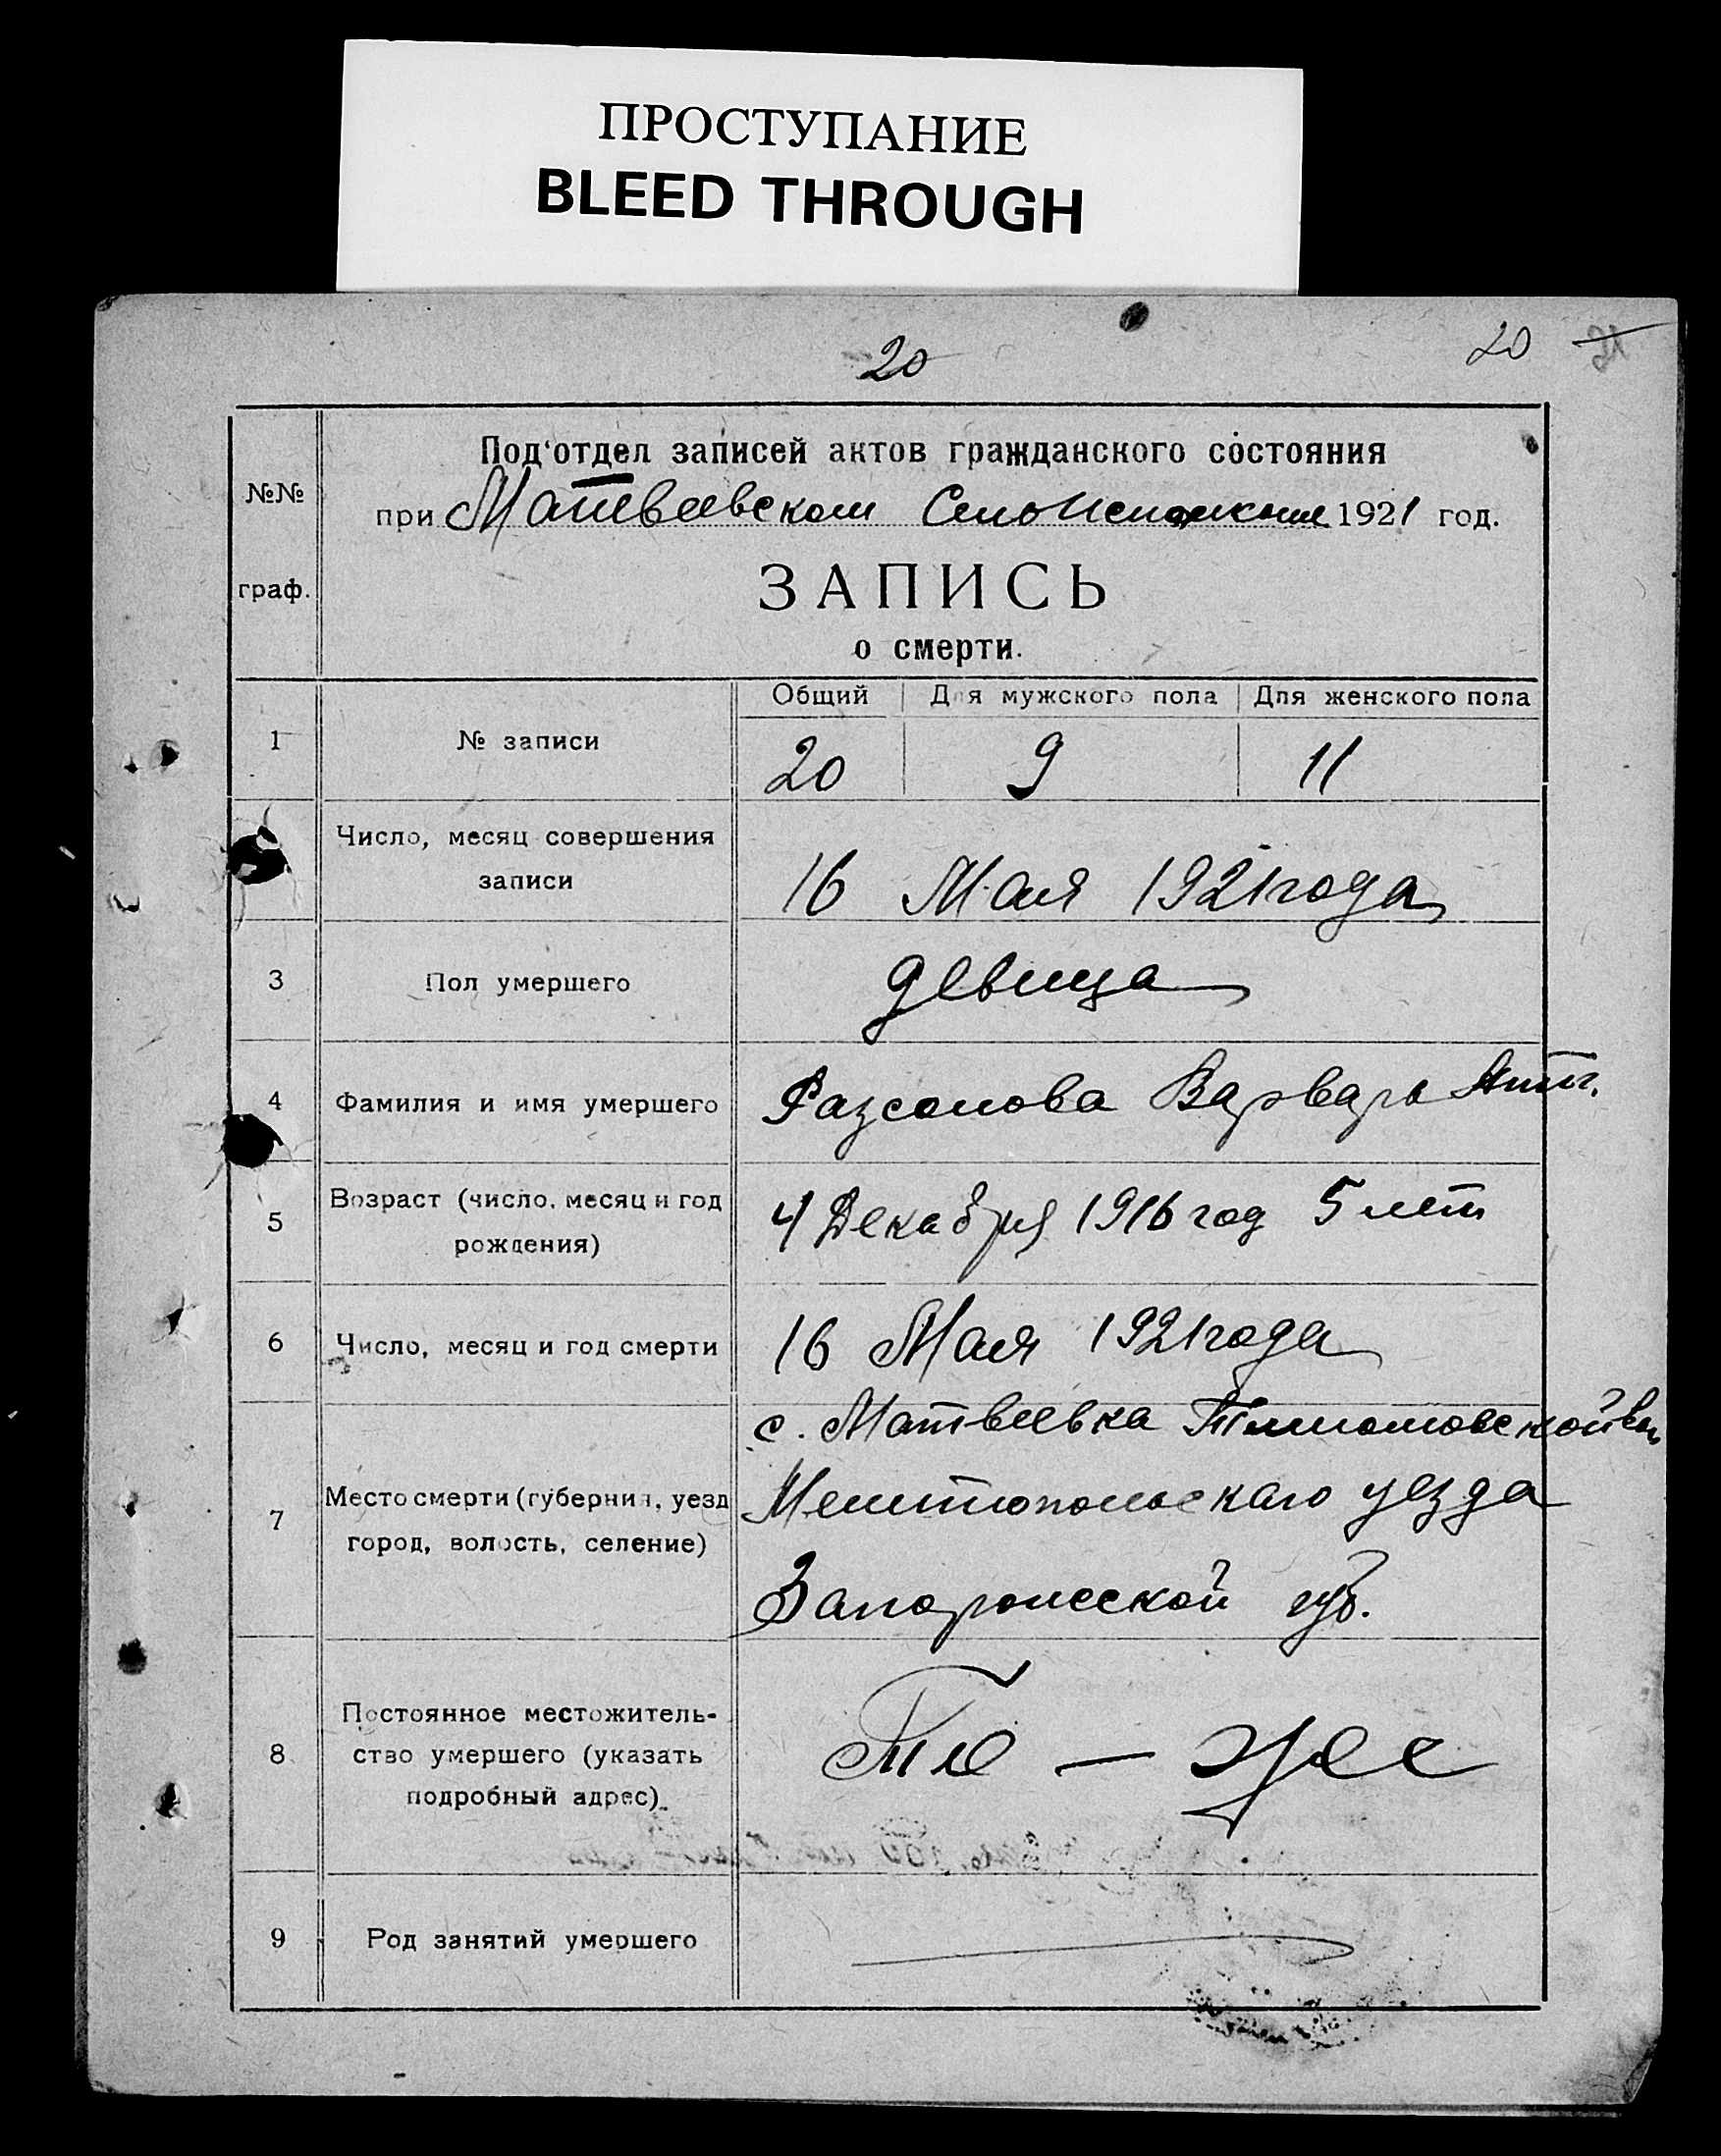 ПРОСТУПАНИЕ
BLEED THROUGH
20
20
Под'отдел записей актов гражданского состояния
№№
при Матвеевском 1921 год.
ЗАПИСЬ
граф.
о смерти.
Общий Для мужского пола Для женского пола
1 № записи 20 9 11
Число, месяц совершения
записи
16 Мая 1921 года
3 Пол умершего девица
4 Фамилия и имя умершего Варвара
Возраст (число, месяц и год
5 4 Декабря 1916 год 5 лет
рождения)
6 Число, месяц и год смерти 16 Мая 1921 года
с. Матвеевка
7 Место смерти (губерния, уезд
город, волость, селение)
Мелитопольскаго уезда
Запорожсской губ.
Постоянное местожитель-
8 ство умершего (указать То - же
подробный адрес).
9 Род занятий умершего